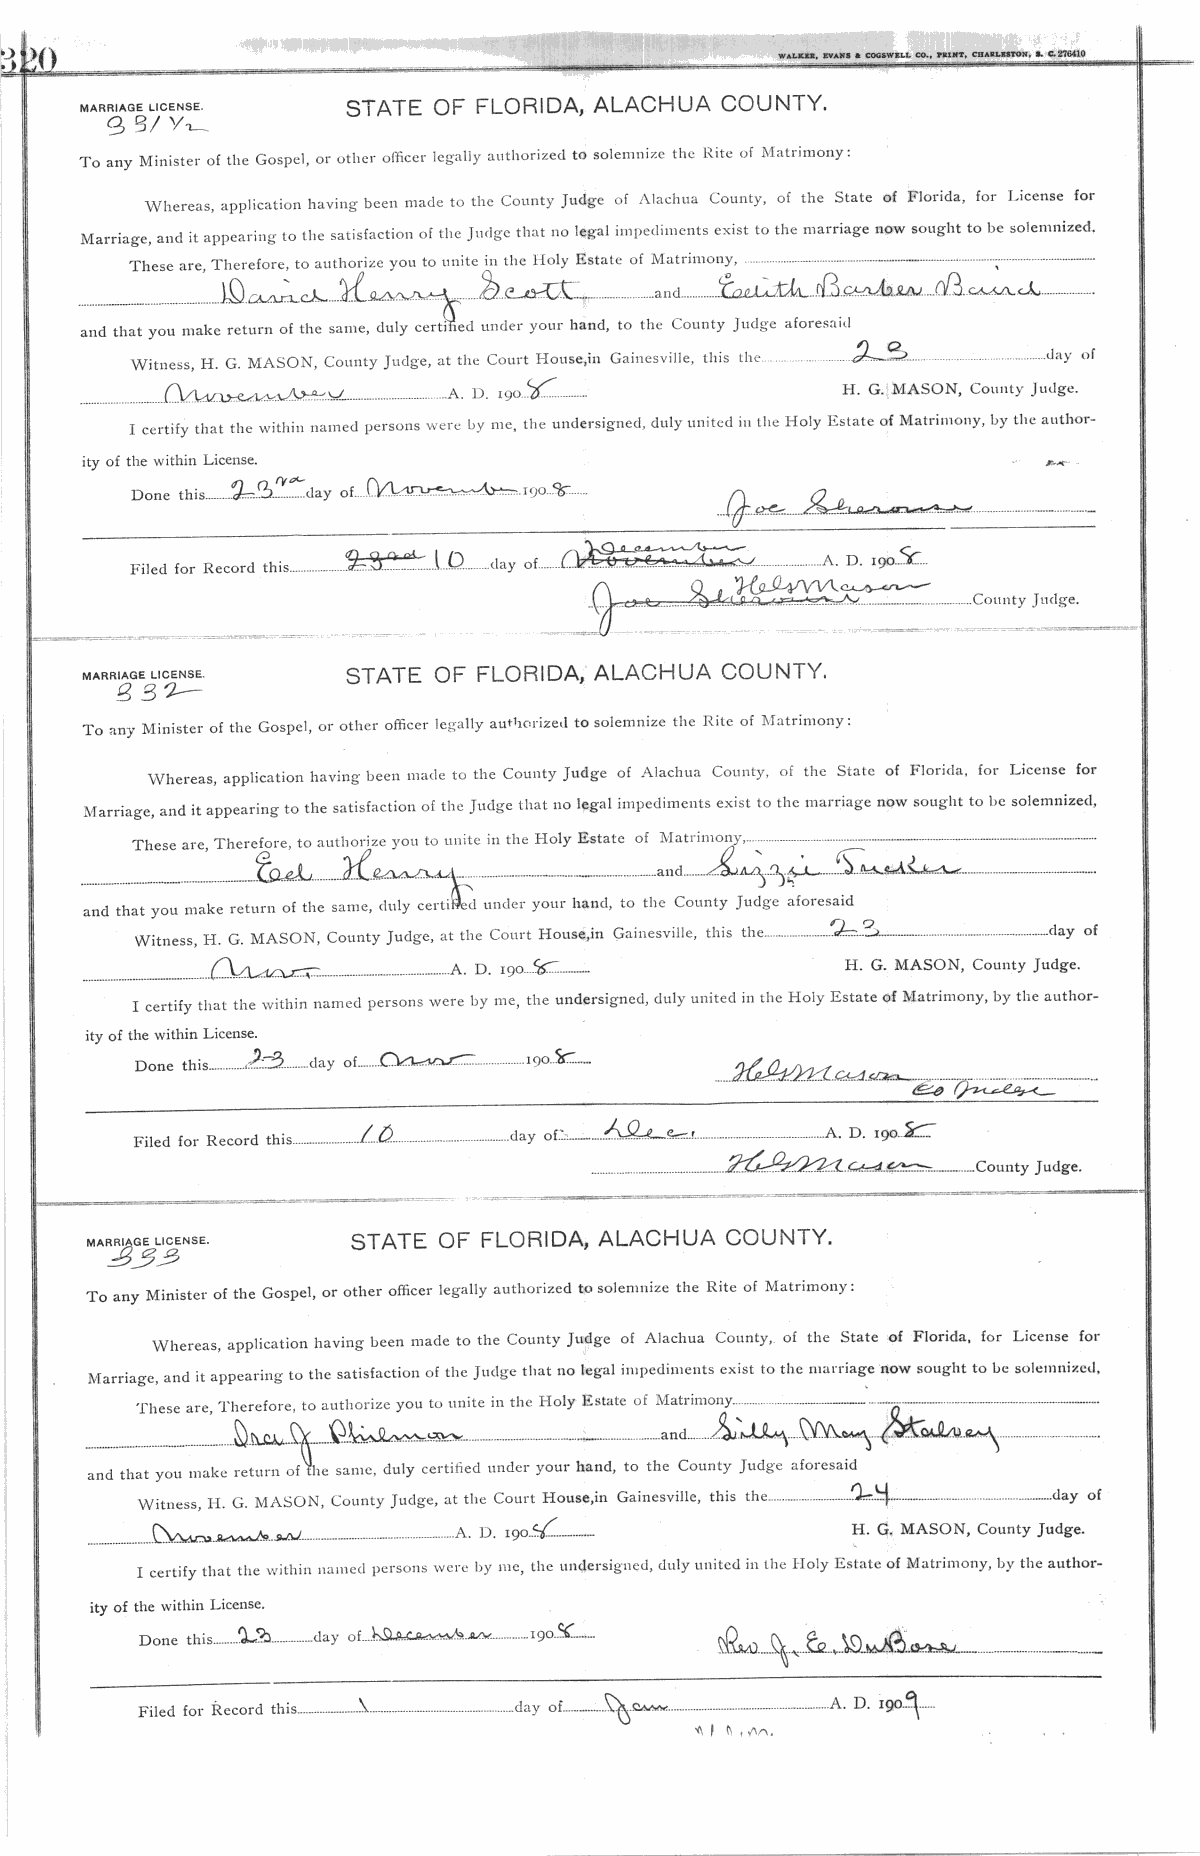 320
WALKER, EVANS & COGSWELL CO., PRINT, CHARLESTON, S. C. 276410
MARRIAGE LICENSE.
STATE OF FLORIDA, ALACHUA COUNTY.
331 1/2
To any Minister of the Gospel, or other officer legally authorized to solemnize the Rite of Matrimony:
Whereas, application having been made to the County Judge of Alachua County, of the State of Florida, for License for
Marriage, and it appearing to the satisfaction of the Judge that no legal impediments exist to the marriage now sought to be solemnized.
These are, Therefore, to authorize you to unite in the Holy Estate of Matrimony,
David Henry Scott and Edith Barber Baird
and that you make return of the same, duly certified under your hand, to the County Judge aforesaid
Witness, H. G. MASON, County Judge, at the Court House,in Gainesville, this the 23 day of
November A. D. 1908 H. G. MASON, County Judge.
I certify that the within named persons were by me, the undersigned, duly united in the Holy Estate of Matrimony, by the author-
ity of the within License.
Done this 23rd day of November 1908
Joe Sherouse
December
Filed for Record this 23rd 10 day of November A. D. 1908
HG Mason
Joe Sherouse County Judge.
MARRIAGE LICENSE.
STATE OF FLORIDA, ALACHUA COUNTY.
332
To any Minister of the Gospel, or other officer legally authorized to solemnize the Rite of Matrimony:
Whereas, application having been made to the County Judge of Alachua County, of the State of Florida, for License for
Marriage, and it appearing to the satisfaction of the Judge that no legal impediments exist to the marriage now sought to be solemnized,
These are, Therefore, to authorize you to unite in the Holy Estate of Matrimony,
Ed Henry and Lizzie Tucker
and that you make return of the same, duly certified under your hand, to the County Judge aforesaid
Witness, H. G. MASON, County Judge, at the Court House,in Gainesville, this the 23 day of
Nov A. D. 1908 H. G. MASON, County Judge.
I certify that the within named persons were by me, the undersigned, duly united in the Holy Estate of Matrimony, by the author-
ity of the within License.
Done this 23 day of Nov 1908
HG Mason
Co Judge
Filed for Record this 10 day of Dec. A. D. 1908
HG Mason County Judge.
MARRIAGE LICENSE.
STATE OF FLORIDA, ALACHUA COUNTY.
333
To any Minister of the Gospel, or other officer legally authorized to solemnize the Rite of Matrimony:
Whereas, application having been made to the County Judge of Alachua County, of the State of Florida, for License for
Marriage, and it appearing to the satisfaction of the Judge that no legal impediments exist to the marriage now sought to be solemnized,
These are, Therefore, to authorize you to unite in the Holy Estate of Matrimony
Ira J Philmon and Lilly May Stalvey
and that you make return of the same, duly certified under your hand, to the County Judge aforesaid
Witness, H. G. MASON, County Judge, at the Court House,in Gainesville, this the 24 day of
November A. D. 1908 H. G. MASON, County Judge.
I certify that the within named persons were by me, the undersigned, duly united in the Holy Estate of Matrimony, by the author-
ity of the within License.
Done this 23 day of December 1908
Rev J. E. DuBose
Filed for Record this 1 day of Jan A. D. 1909